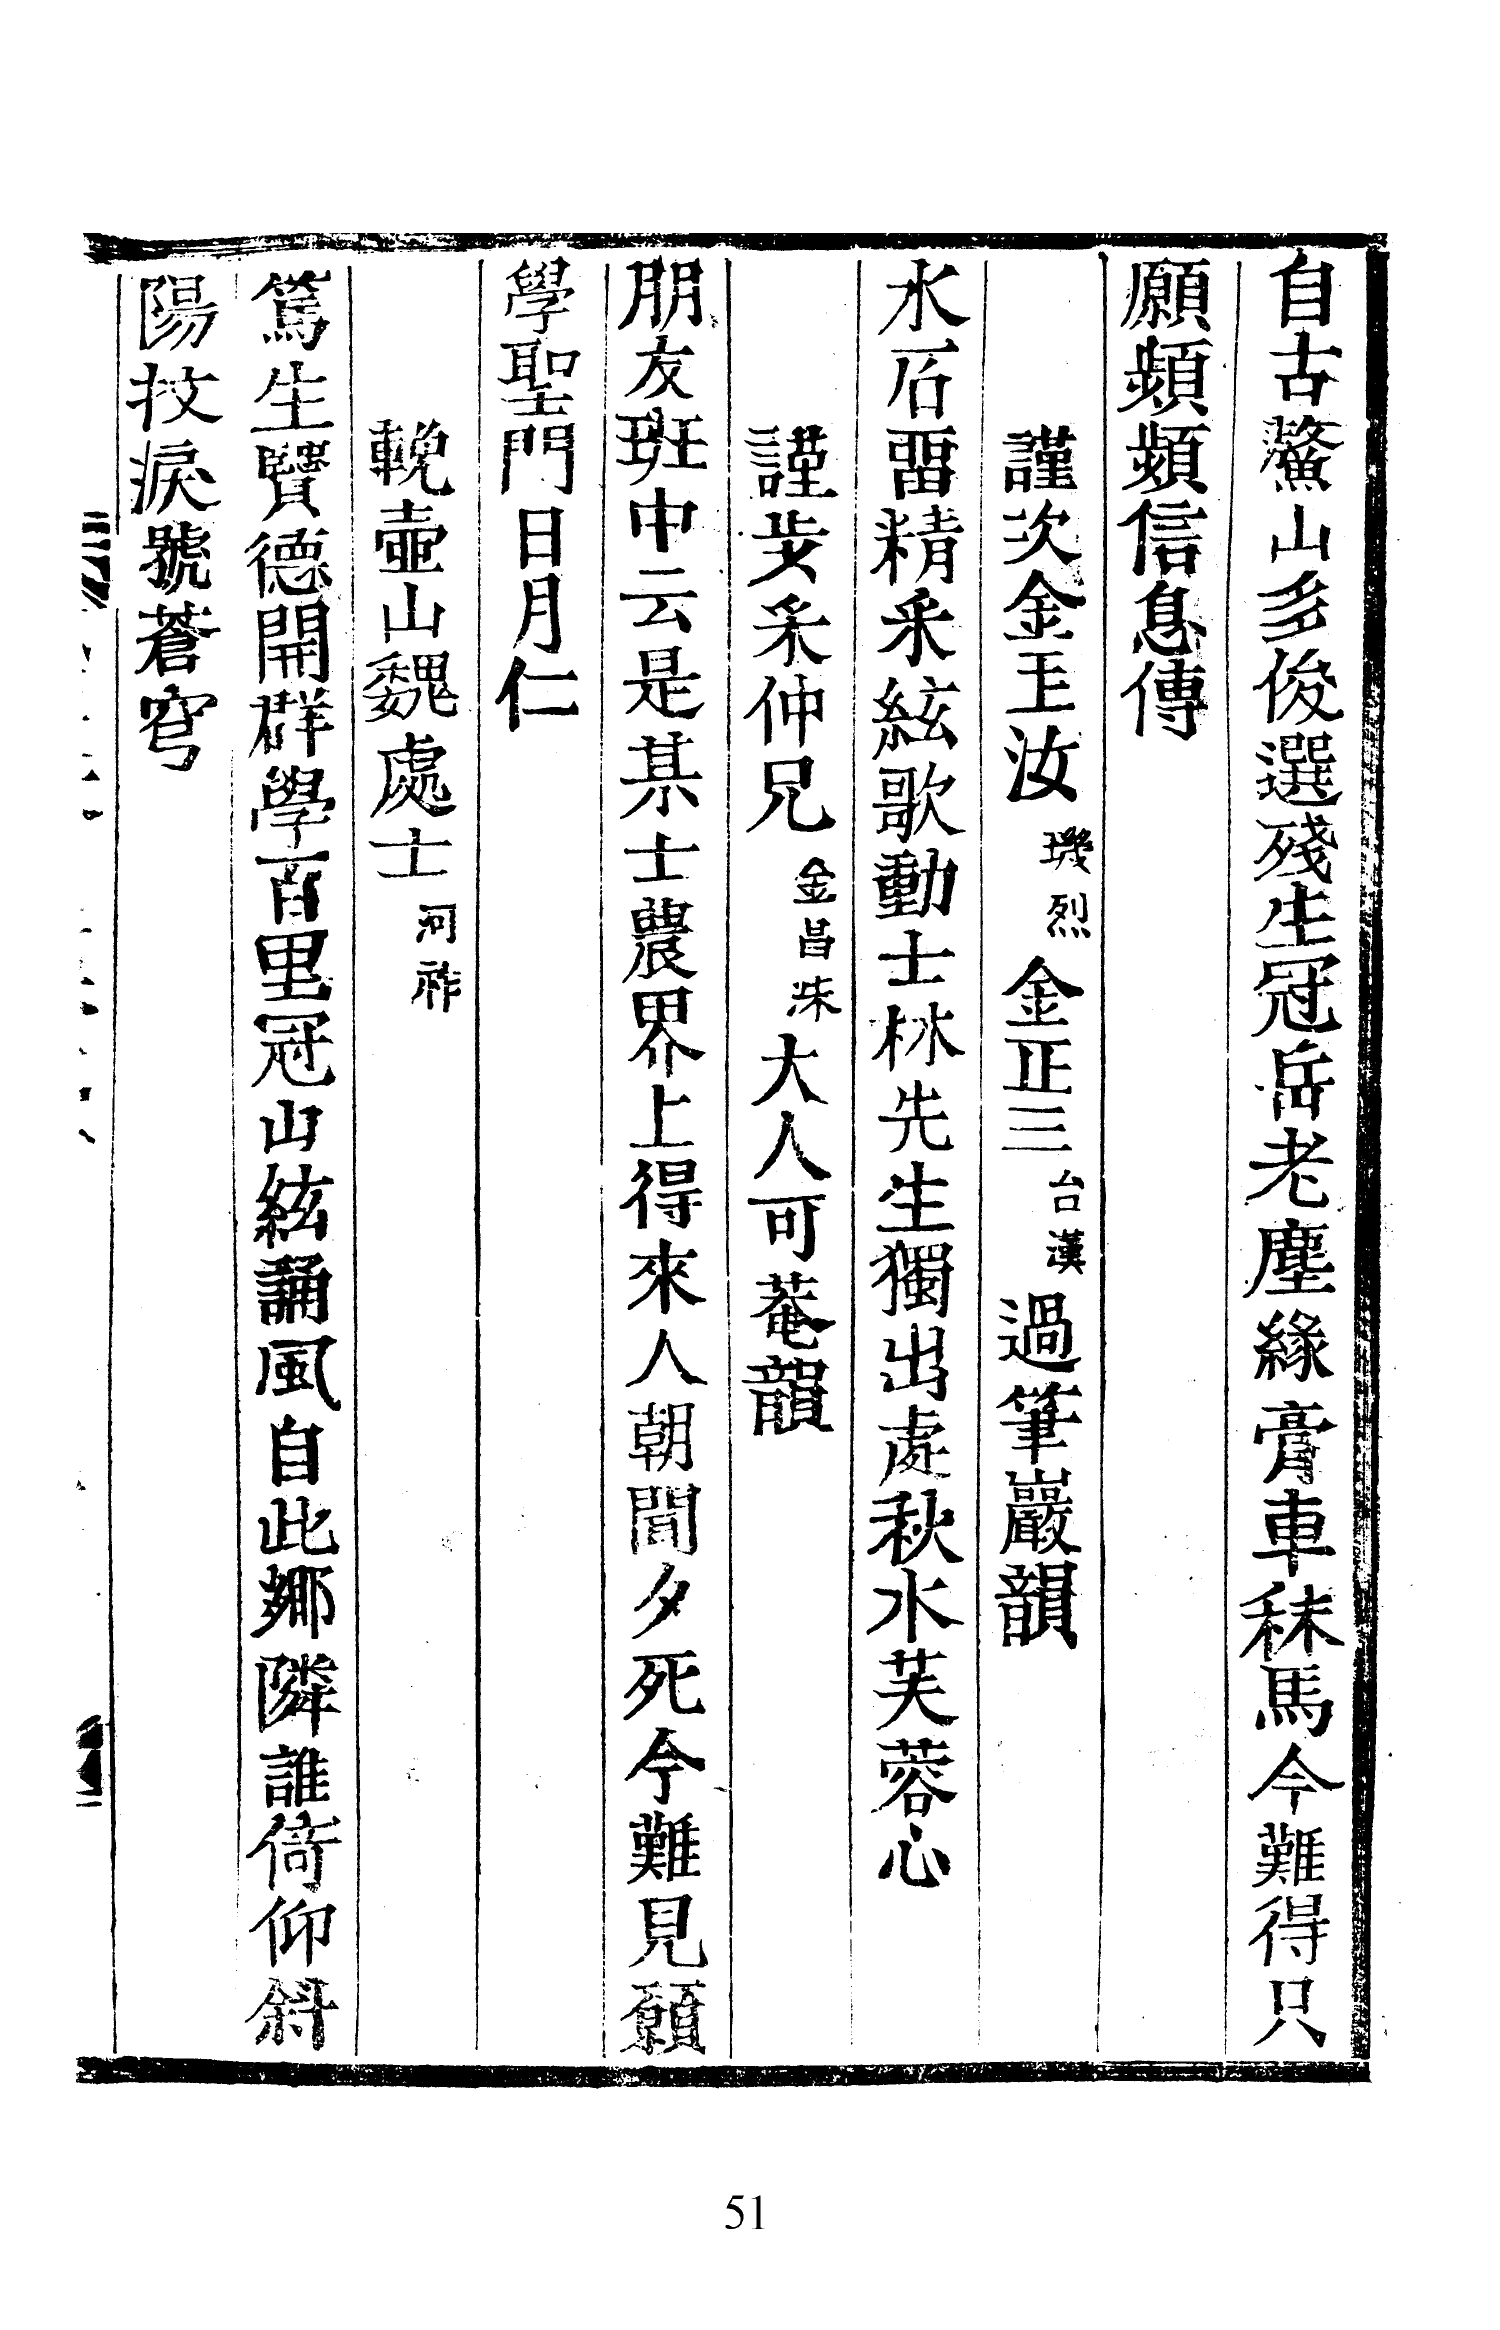 自古鰲山多俊選殘生冠岳老塵緣膏車秣馬今難得只
願頻頻信息傳
謹次金玉汝 璣烈 金正三 台漢 過筆巖韻
水石畱精采絃歌動士林先生獨出處秋水芙蓉心
謹步采仲兄 金昌洙 大人可菴韻
朋友班中云是某士農界上得來人朝聞夕死今難見願
學聖門日月仁
輓壺山魏處士 河祚
篤生賢德開群學百里冠山絃誦風自此鄉隣誰倚仰斜
陽抆淚號蒼穹
51